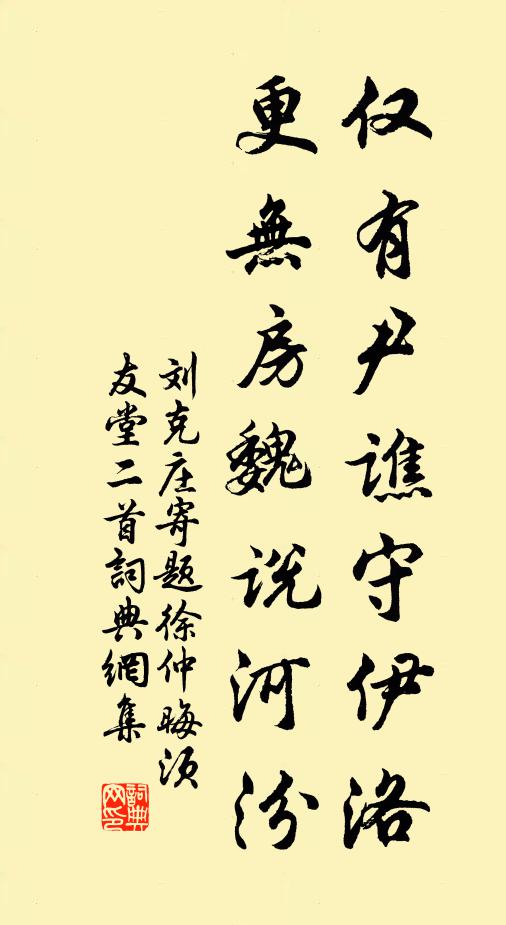 仅有尹谯守伊洛
更無房魏说河汾
刘克庄寄题徐仲晦须
友堂二首詞典網集
詞典網印